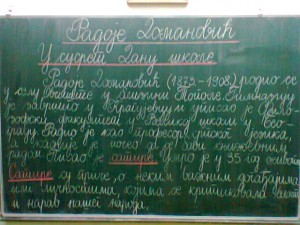 Радоје Домановић
У сусрет Дану школе
Радоје Домановић (1873-1908) родио се
у селу у близини Тополе. Гимназију
је завршио у Крагујевцу, учио је Фило-
зофски факултет на Великој школи у Бео-
граду. Радио је као професор српског језика,
касније је почео да се бави књижевним
радом. Писао је сатире. Умро је у 35 год.
Сатире су приче о неким важним догађајима
или личностима, којима се критиковала власт
и нарав нашег народа.